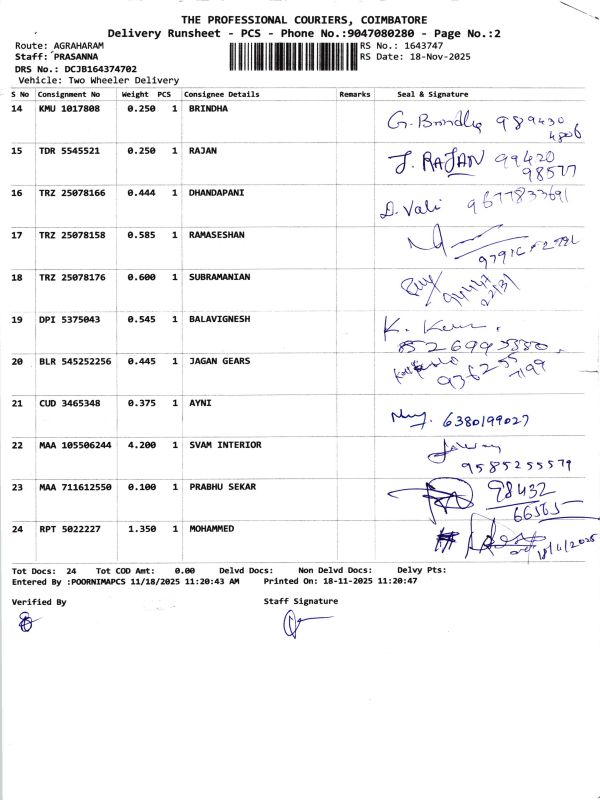 THE PROFESSIONAL COURIERS, COIMBATORE
Delivery Runsheet - PCS - Phone No.:9047080280 - Page No.:2
Route: AGRAHARAM RS No.: 1643747
Staff: PRASANNA RS Date: 18-Nov-2025
DRS No.: DCJB164374702
Vehicle: Two Wheeler Delivery
S No Consignment No Weight PCS Consignee Details Remarks Seal & Signature
14 KMU 1017808 0.250 1 BRINDHA G. Brindha 989430
4806
15 TDR 5545521 0.250 1 RAJAN J. RAJAN 99420
98577
16 TRZ 25078166 0.444 1 DHANDAPANI D. Vali 9677833691
17 TRZ 25078158 0.585 1 RAMASESHAN
18 TRZ 25078176 0.600 1 SUBRAMANIAN 94447
22131
19 DPI 5375043 0.545 1 BALAVIGNESH K.
8526995550
20 BLR 545252256 0.445 1 JAGAN GEARS 936255
7199
21 CUD 3465348 0.375 1 AYNI 6380199027
22 MAA 105506244 4.200 1 SVAM INTERIOR
9585255579
23 MAA 711612550 0.100 1 PRABHU SEKAR 98432
66565
24 RPT 5022227 1.350 1 MOHAMMED 18/11/2025
Tot Docs: 24 Tot COD Amt: 0.00 Delvd Docs: Non Delvd Docs: Delvy Pts:
Entered By :POORNIMAPCS 11/18/2025 11:20:43 AM Printed On: 18-11-2025 11:20:47
Verified By Staff Signature